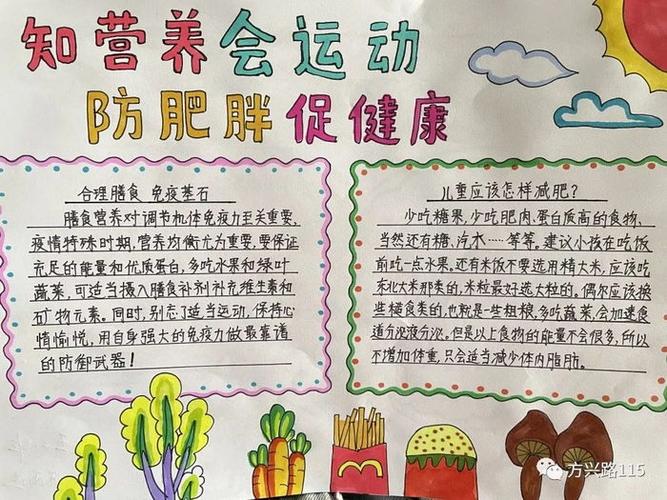 知营养会运动
防肥胖促健康
合理膳食 免疫基石
膳食营养对调节机体免疫力至关重要,
疫情特殊时期,营养均衡尤为重要,要保证
充足的能量和优质蛋白,多吃水果和绿叶
蔬菜,可适当摄入膳食补剂补充维生素和
矿物元素。同时,别忘了适当运动,保持心
情愉悦,用自身强大的免疫力做最靠谱
的防御武器!
儿童应该怎样减肥?
少吃糖果,少吃肥肉,蛋白质高的食物、
当然还有糖、汽水……等等。建议小孩在吃饭
前吃一点水果。还有米饭不要选用精大米,应该吃
东北大米那类的,米粒最好选大粒的。偶尔应该换
些糙食类的,也就是一些粗粮,多吃蔬菜,会加速食
道分泌液分泌。但是以上食物的能量不会很多,所以
不增加体重,只会适当减少体内脂肪。
方兴路115